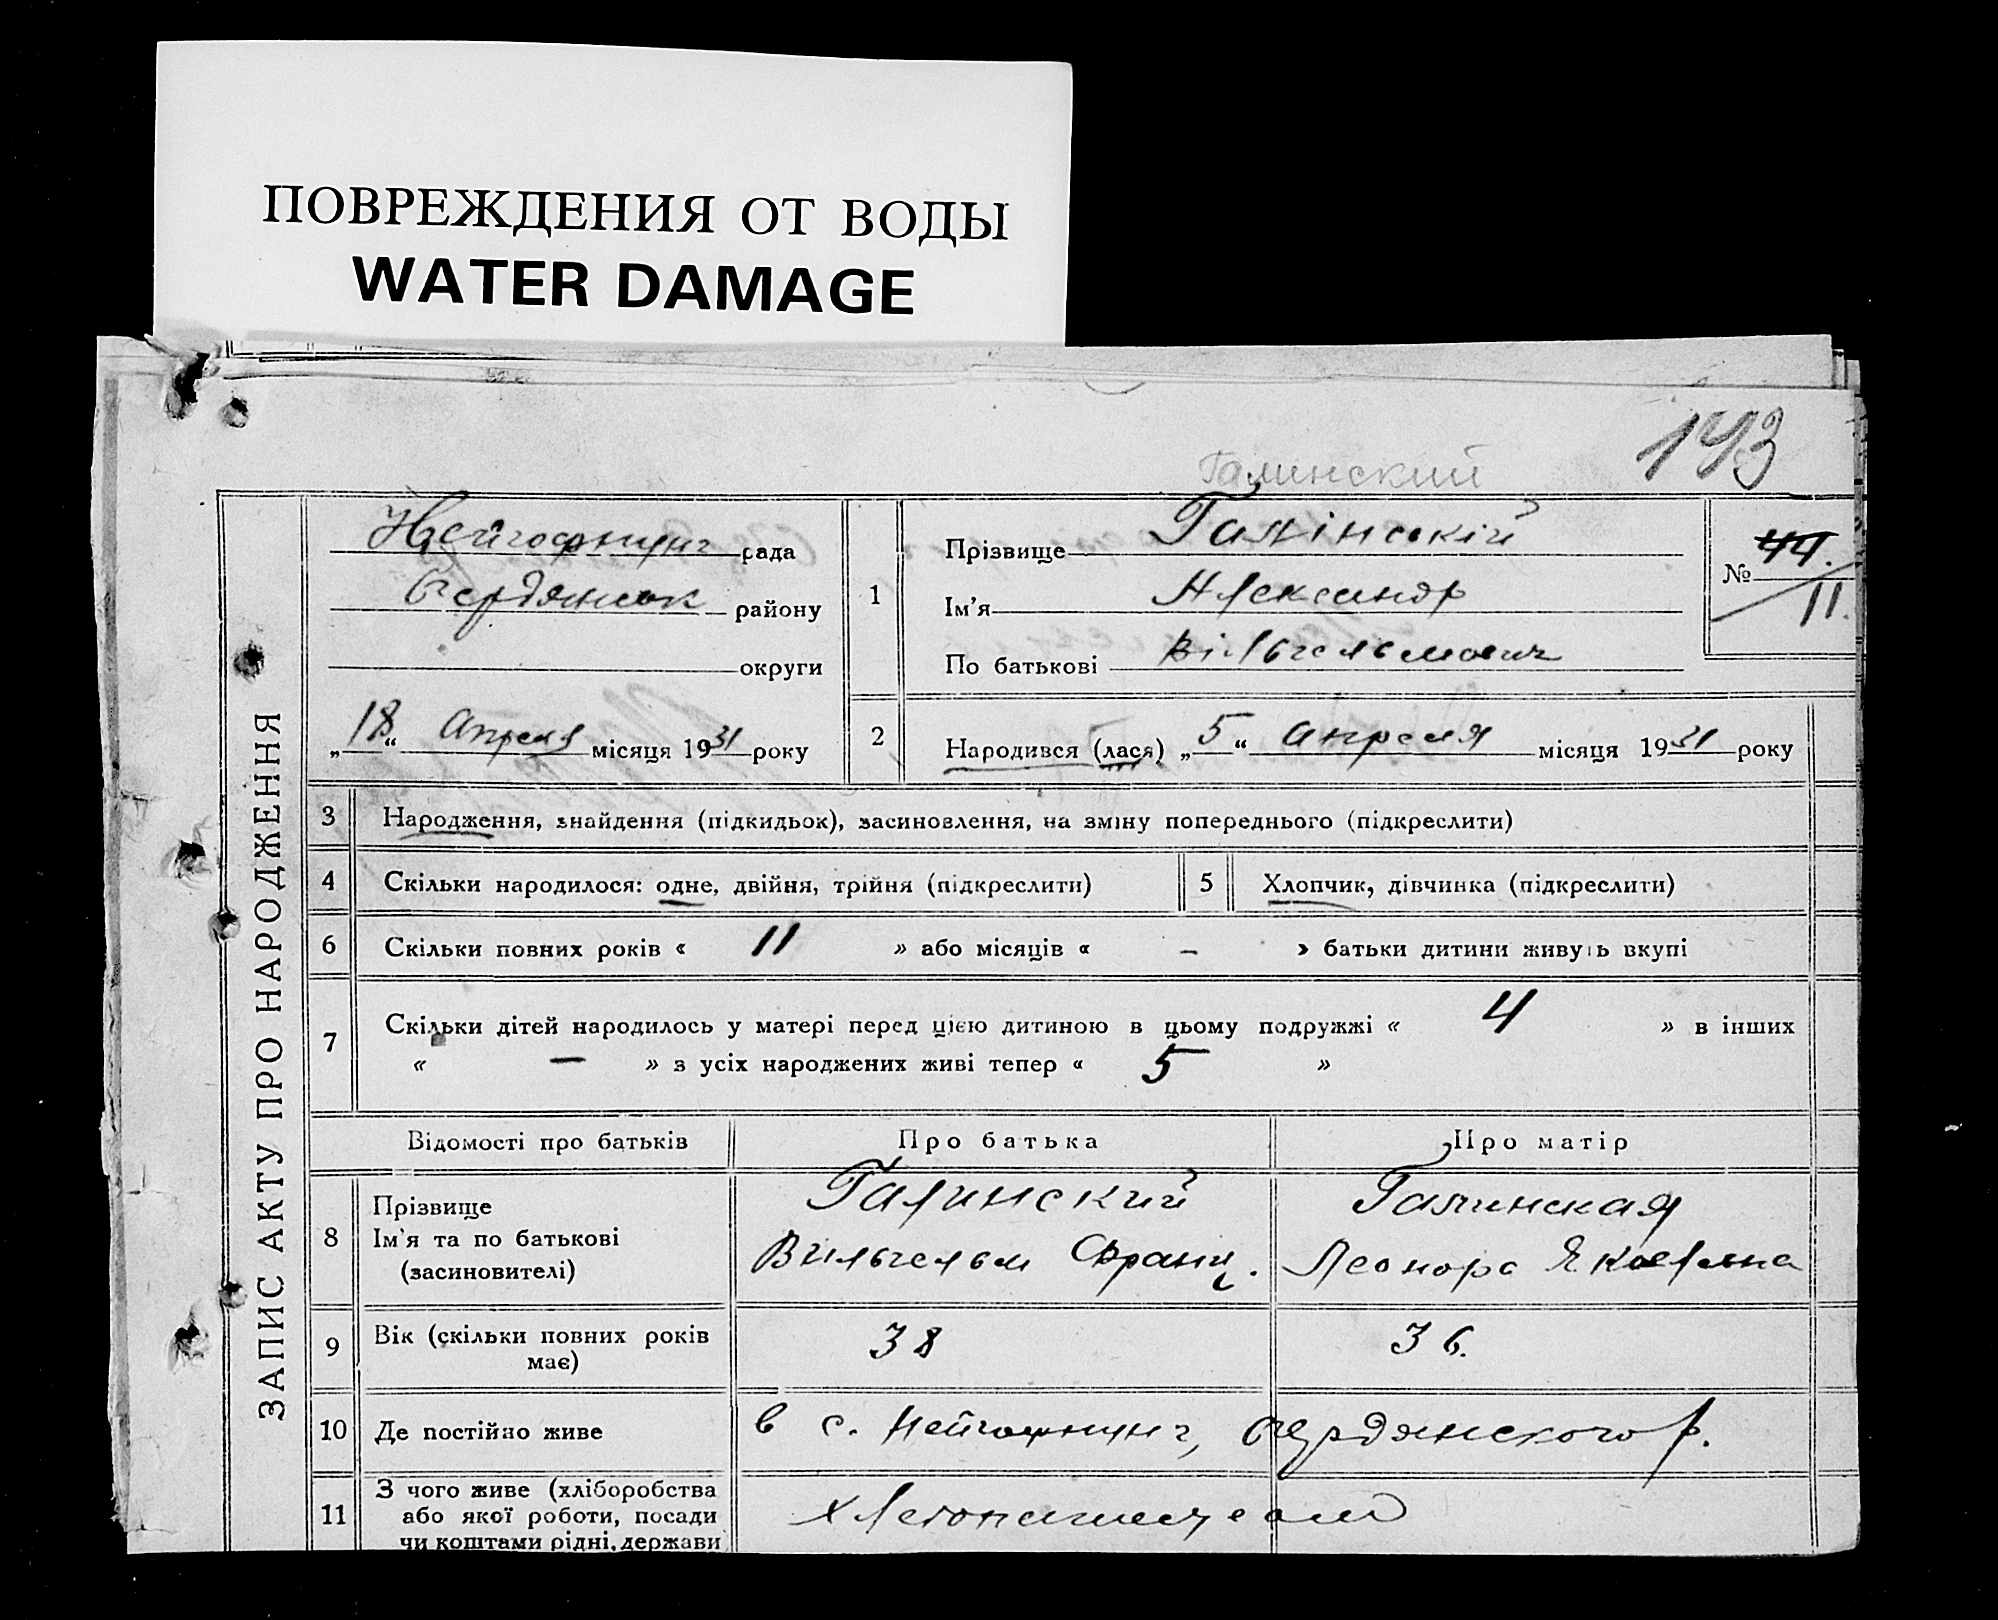 ПОВРЕЖДЕНИЯ ОТ ВОДЫ
WATER DAMAGE
143
Галинский
ЗАПИС АКТУ ПРО НАРОДЖЕННЯ
Нейгофнунг рада
Бердянськ району
округи
„18“ Апреля місяця 1931 року
1
Прізвище Галінський
Ім'я Александр
По батькові Вільгельмович
№ 44.
11.
2
Народився (лася) „5“ апреля місяця 1931 року
3 Народження, знайдення (підкидьок), засиновлення, на зміну попереднього (підкреслити)
4 Скільки народилося: одне, двійня, трійня (підкреслити) 5 Хлопчик, дівчинка (підкреслити)
6 Скільки повних років « 11 » або місяців « – » батьки дитини живуть вкупі
7 Скільки дітей народилось у матері перед цією дитиною в цьому подружжі « 4 » в інших
« – » з усіх народжених живі тепер « 5 »
Відомості про батьків Про батька Про матір
8 Прізвище
Ім'я та по батькові
(засиновителі)
Галинский
Вильгельм Франц.
Галинская
Леонора Яковлевна
9 Вік (скільки повних років має) 38 36.
10 Де постійно живе в с. Нейгофнунг, Бердянского р.
11 З чого живе (хліборобства
або якої роботи, посади
чи коштами рідні, держави
Хлебопашеством